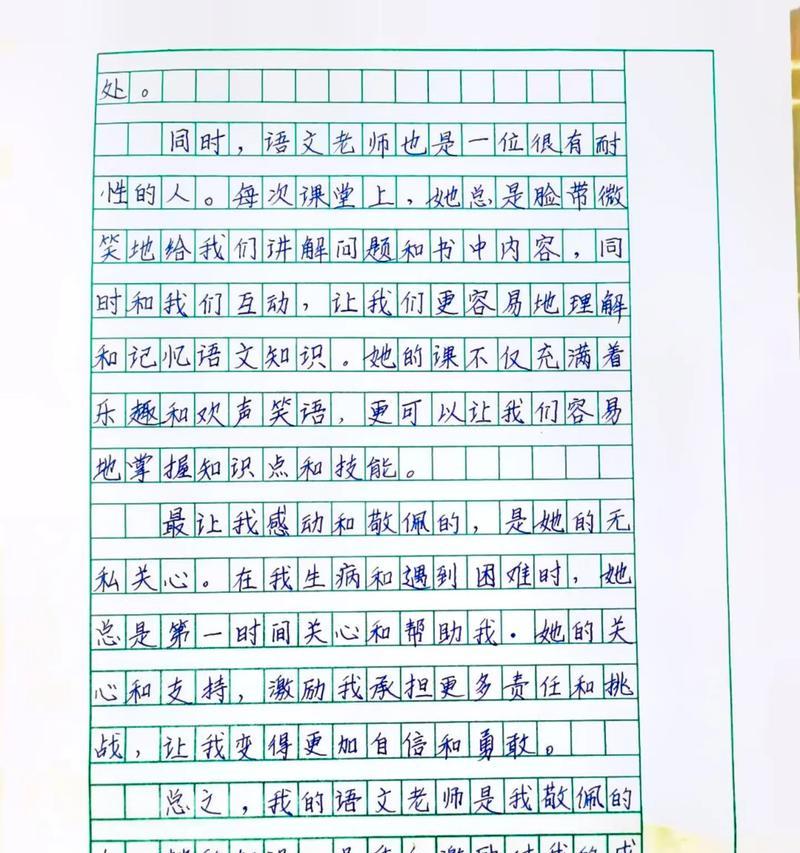 处。
同时，语文老师也是一位很有耐
性的人。每次课堂上，她总是脸带微
笑地给我们讲解问题和书中内容，同
时和我们互动，让我们更容易地理解
和记忆语文知识。她的课不仅充满着
乐趣和欢声笑语，更可以让我们容易
地掌握知识点和技能。
最让我感动和敬佩的，是她的无
私关心。在我生病和遇到困难时，她
总是第一时间关心和帮助我．她的关
心和支持，激励我承担更多责任和挑
战，让我变得更加自信和勇敢。
总之，我的语文老师是我敬佩的